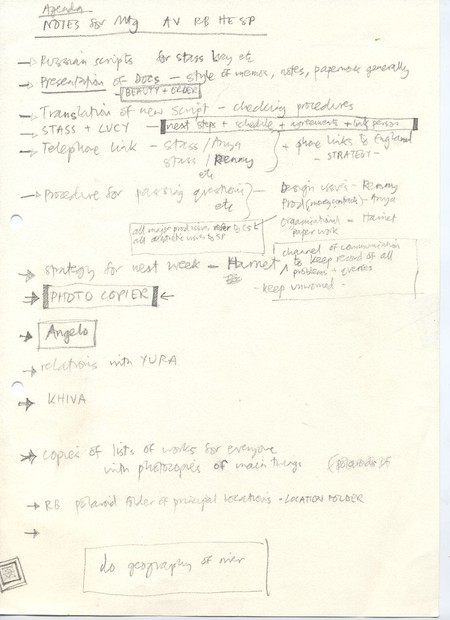 Agenda
NOTES for Mtg AV RB HE SP
→ Russian scripts for stass Lucy etc
→ Presentation of DOCS - style of memos, notes, paperwork generally
- BEAUTY + ORDER
→ Translation of new script - checking procedures
→ STASS + LUCY - next steps + schedule + agreements + link person
→ Telephone link - Stass / Anya + phone links to England
stass / Renny - STRATEGY -
etc
→ Procedure for passing questions Design issues - Renny
etc Prod (money contacts) - Anya
organisational - Harriet
paper work
all major prod issues refer to CS
all aesthetic issues to SP
channel of communication
→ strategy for next week - Harriet to keep record of all
problems + queries
- keep informed -
→ PHOTO COPIER ←
→ Angelo
→ relations with YURA
→ KHIVA
→ copies of lists of works for everyone
with photocopies of main things
→ RB polaroid folder of principal locations - LOCATION FOLDER
→
do geography of river